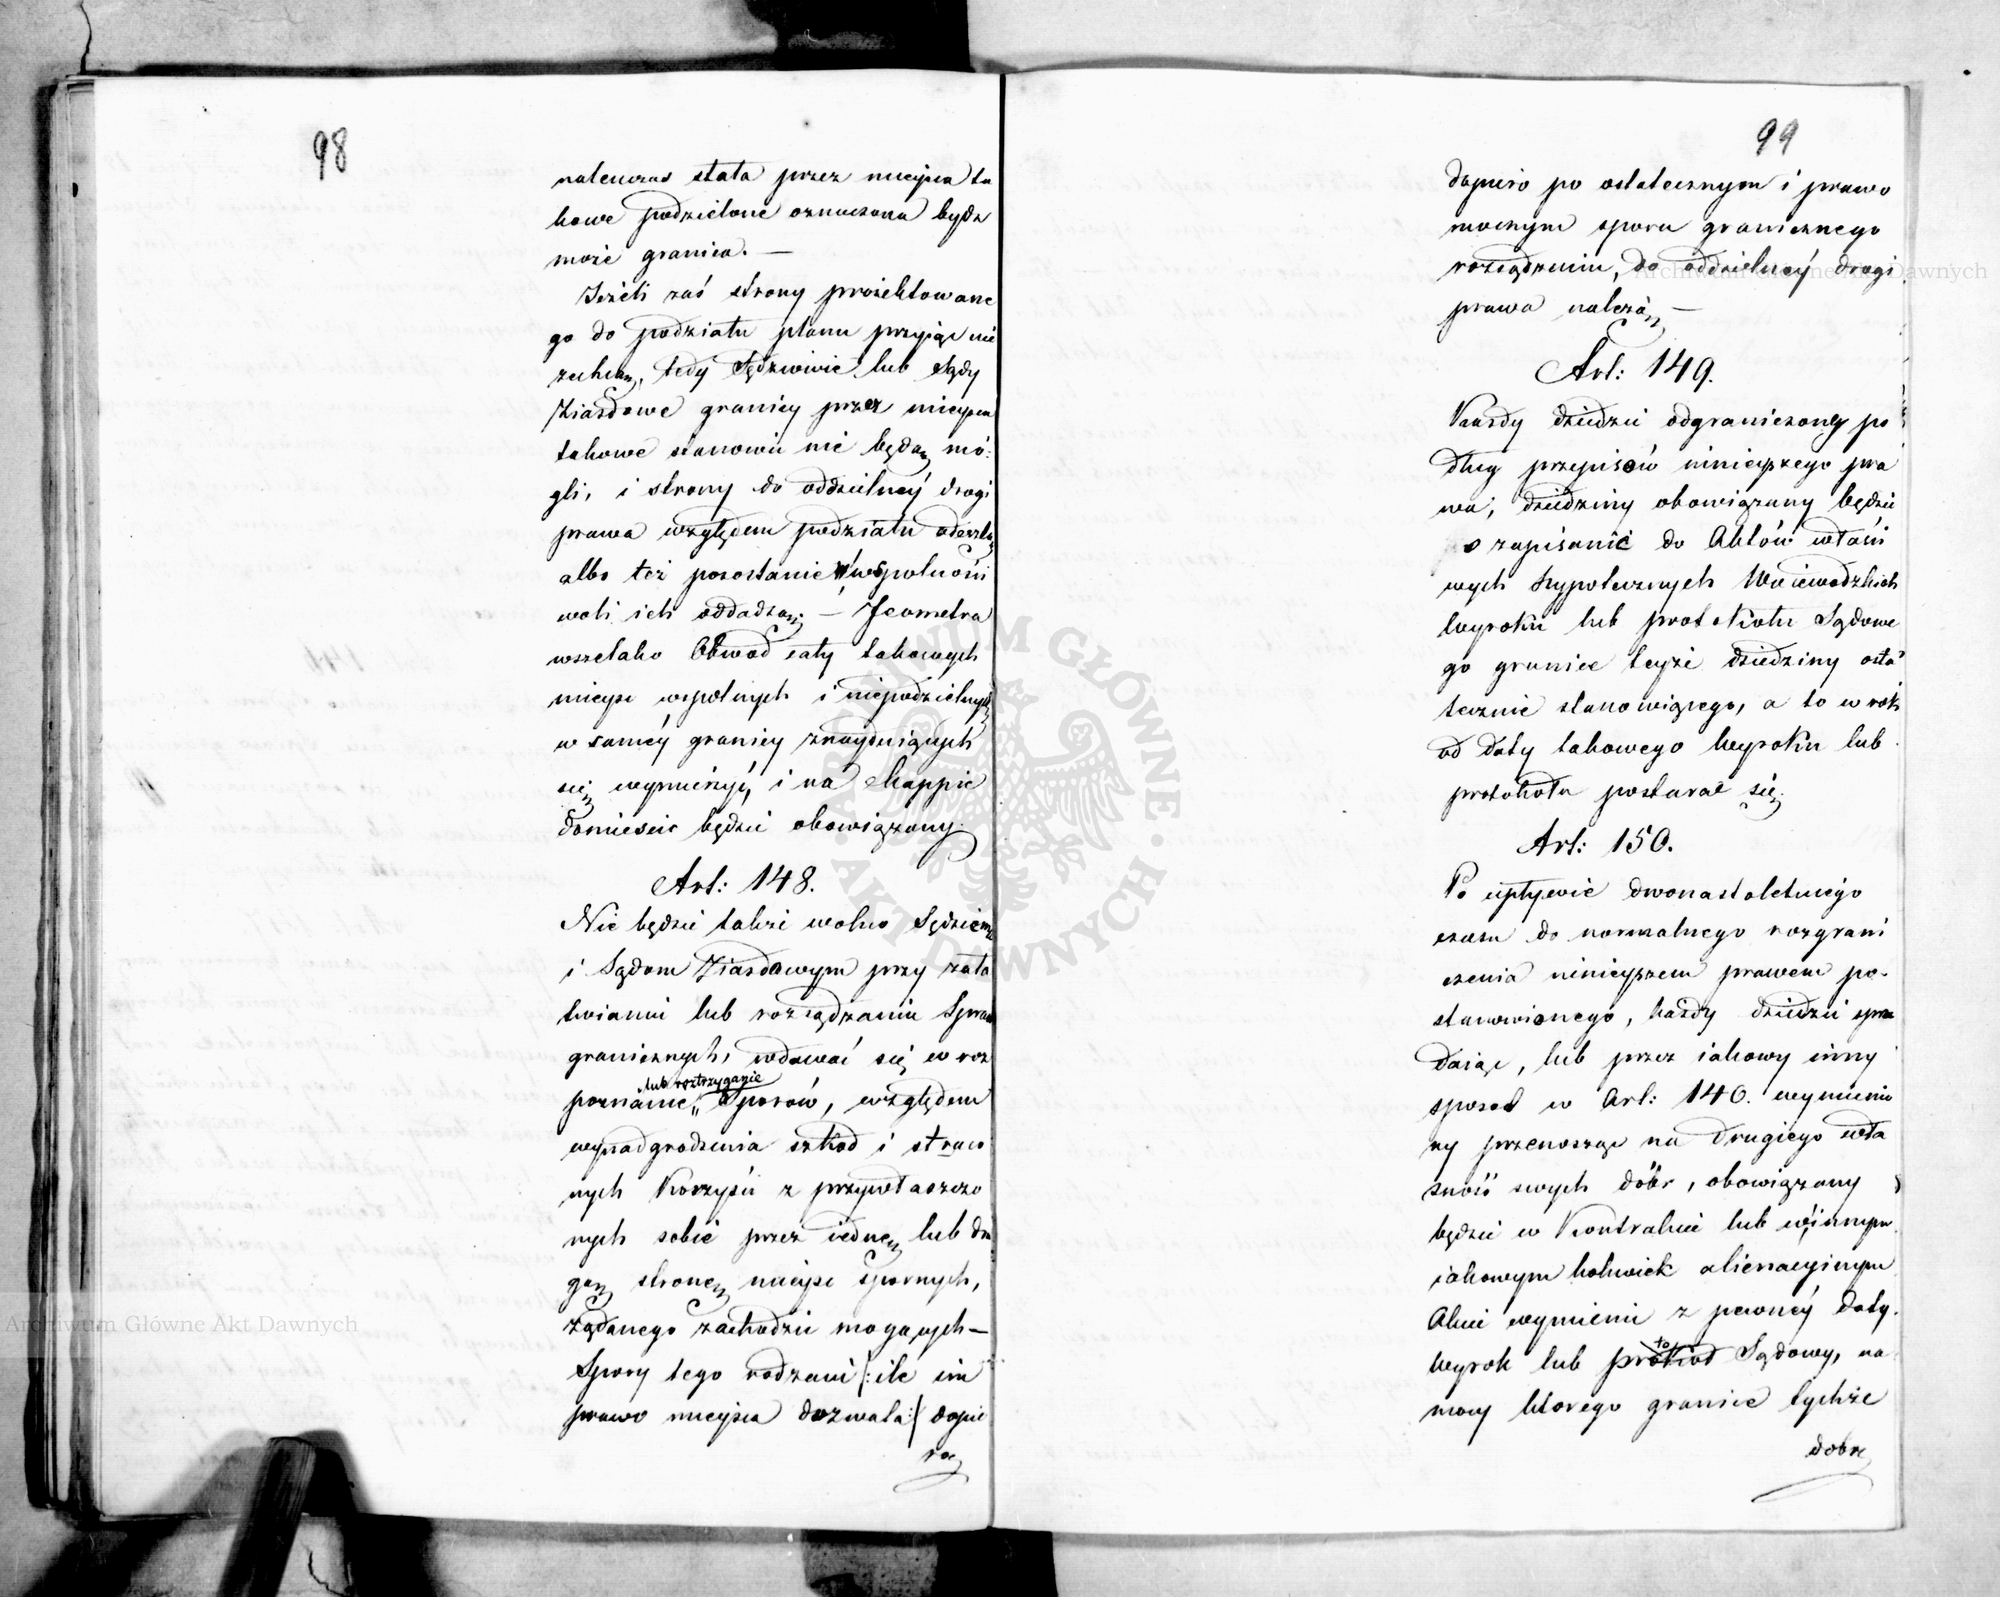 98
natenczas stała przez mieysca ta
kowe podzielone oznaczona bydź
może granica. —
Jeżeli zaś strony proiektowane
go do podziału planu przyiąć nie
zechcą, tedy Sędziowie lub Sądy
Ziazdowe granicy przez mieysca
takowe stanowić nie będą mo:
gli, i strony do oddzielnéy drogi
prawa względem podziału odeszlą,
albo też pozostanie w wspólności
woli ich oddadzą; — Jeometra
wszelako Obwód cały takowych
mieysc wspolnych i niepodzielnych,
w saméy granicy znayduiących
się wymierzyć, i na Mappie
domieścić będzie obowiązany.
Art: 148.
Nie będzie także wolno Sędziem
i Sądom Ziazdowym przy zała
twianiu lub rozsądzaniu Spraw
granicznych, wdawać się w roz
lub roztrzyganie
poznanie,, Sporów, względem
wynadgrodzenia szkód i straco
nych Korzyści z przywłaszczo
nych sobie przez iednę lub dru
gą stronę mieysc spornych,
żądanego zachodzić mogących —
Spory tego rodzaiu /: ile im
prawo mieysca dozwala :/ dopie
ro
99
dopiero po ostatecznym i prawo
mocnym sporu granicznego
rozsądzeniu, do oddzielnéy drogi
prawa należą, —
Art: 149.
Każdy dziedzic odgraniczony po
dług przepisów ninieyszego pra
wa, dziedziny obowiązany będzie
o zapisanie do Aktów właści
wych Hypotecznych Woiewodzkich
Wyroku lub protokółu Sądowe
go granice teyże dziedziny osta
tecznie stanowiącego, a to w rok
od daty takowego Wyroku lub
protokółu postarać się.
Art: 150.
Po upływie dwonastoletniego
czasu do normalnego rozgrani
czenia ninieyszem prawem po-
stanowionego, każdy dziedzic sprze
daiąc, lub przez iakowy inny
sposob w Art: 146. wymienio
ny przenosząc na drugiego wła
sność swych dóbr, obowiązany
będzie w Kontrakcie lub w innym
iakowym kolwiek alienacyinym
Akcie wymienić z pewnéy daty
to
Wyrok lub protokół Sądowy, na
mocy którego granice tychże
dobr